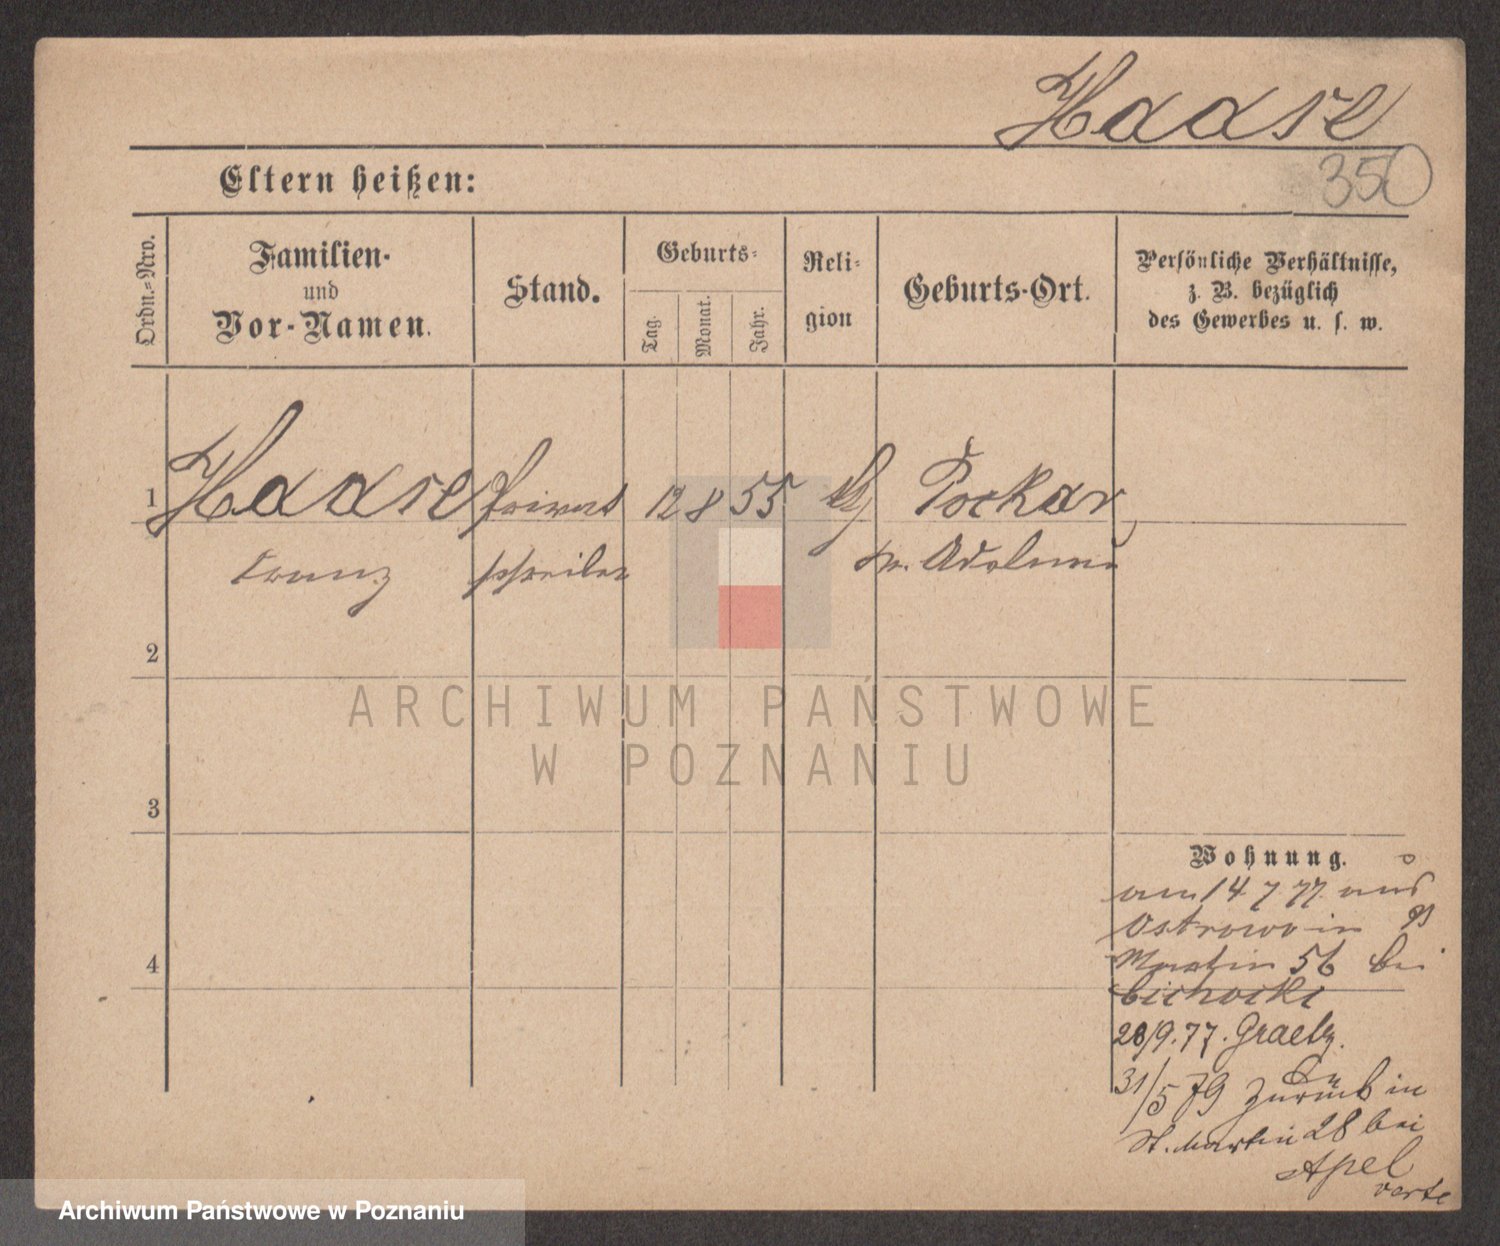 Haase
350
Eltern heißen:
Ordn.-Nro.
Familien-
und
Vor-Namen.
Stand.
Geburts-
Tag.
Monat.
Jahr.
Reli-
gion
Geburts-Ort.
Persönliche Verhältnisse,
z. B. bezüglich
des Gewerbes u. s. w.
1 Haase Privat 12 8 55
Franz schreiber Kr. Adelnau
2
3
4
Wohnung.
am 14 7 77 aus
Ostrowo in
Martin 56 bei
Cichocki
28/9.77. Graetz.
31/5 79 Zurück in
St. Martin 28 bei
Apel
verte
ARCHIWUM PAŃSTWOWE
W POZNANIU
Archiwum Państwowe w Poznaniu